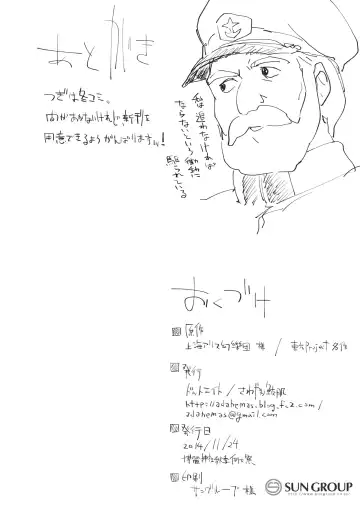 あとがき
つぎは冬コミ。
何があるかわからないけれど新刊を
用意できるようがんばります!
私は
追わなければ
ならないという
衝動に
駆られている
おくづけ
原作
上海アリス幻樂団 様 / 東方Project 各位
発行
ドットエイト /
http://adahemas.blog.fc2.com/
adahemas@gmail.com
発行日
2014/11/24
印刷
サングループ 様
SUN GROUP